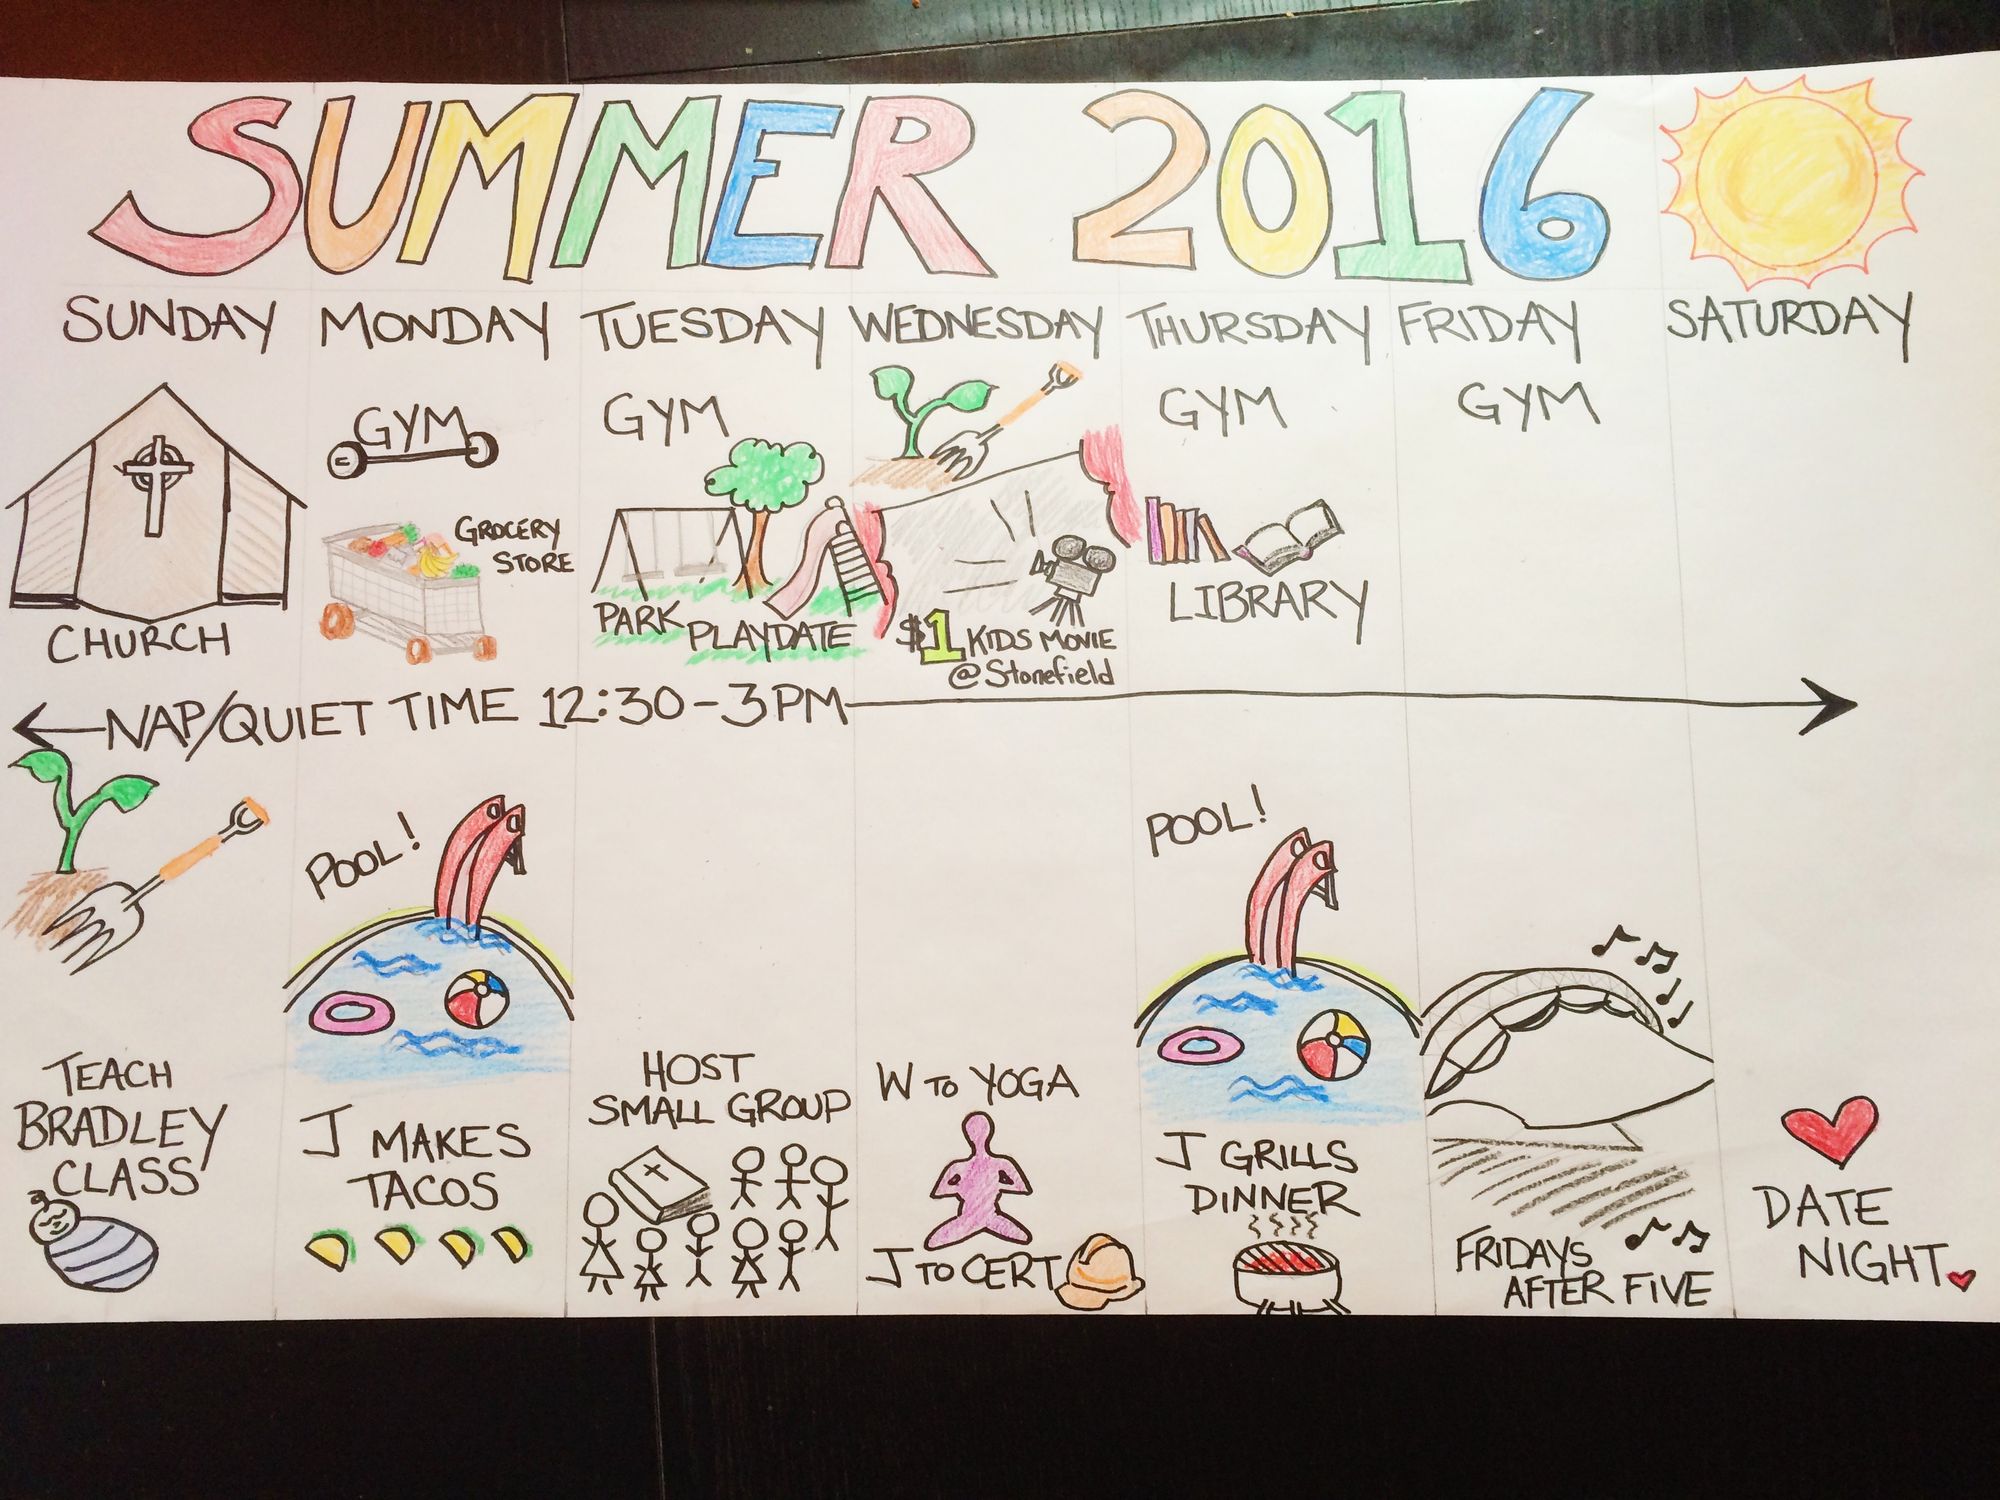 SUMMER 2016
SUNDAY MONDAY TUESDAY WEDNESDAY THURSDAY FRIDAY SATURDAY
CHURCH
GYM
GROCERY
STORE
GYM
PARK PLAYDATE
$1 KIDS MOVIE
@Stonefield
GYM
LIBRARY
GYM
NAP/QUIET TIME 12:30-3PM
TEACH
BRADLEY
CLASS
POOL!
J MAKES
TACOS
HOST
SMALL GROUP
W TO YOGA
J TO CERT
POOL!
J GRILLS
DINNER
FRIDAYS
AFTER FIVE
DATE
NIGHT